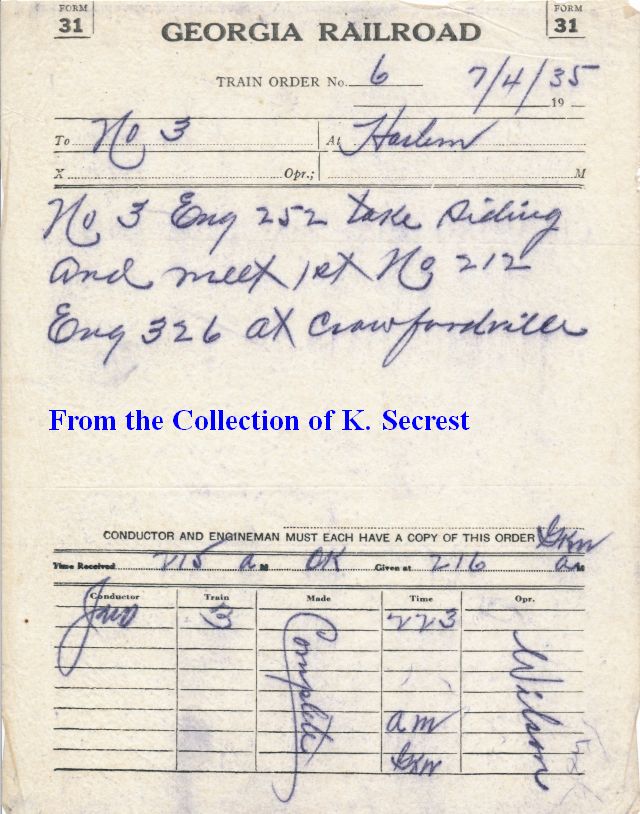 FORM 31 FORM 31
GEORGIA RAILROAD
TRAIN ORDER No. 6 7/4/35
19
To No 3 At Harlem
X Opr.; M
No 3 Eng 252 take siding
and meet 1st No 212
Eng 326 at Crawfordville
From the Collection of K. Secrest
CONDUCTOR AND ENGINEMAN MUST EACH HAVE A COPY OF THIS ORDER GKW
Time Received 215 a M OK Given at 216 a M
Conductor Train Made Time Opr.
3 Complete 223 Wilson
am
GKW